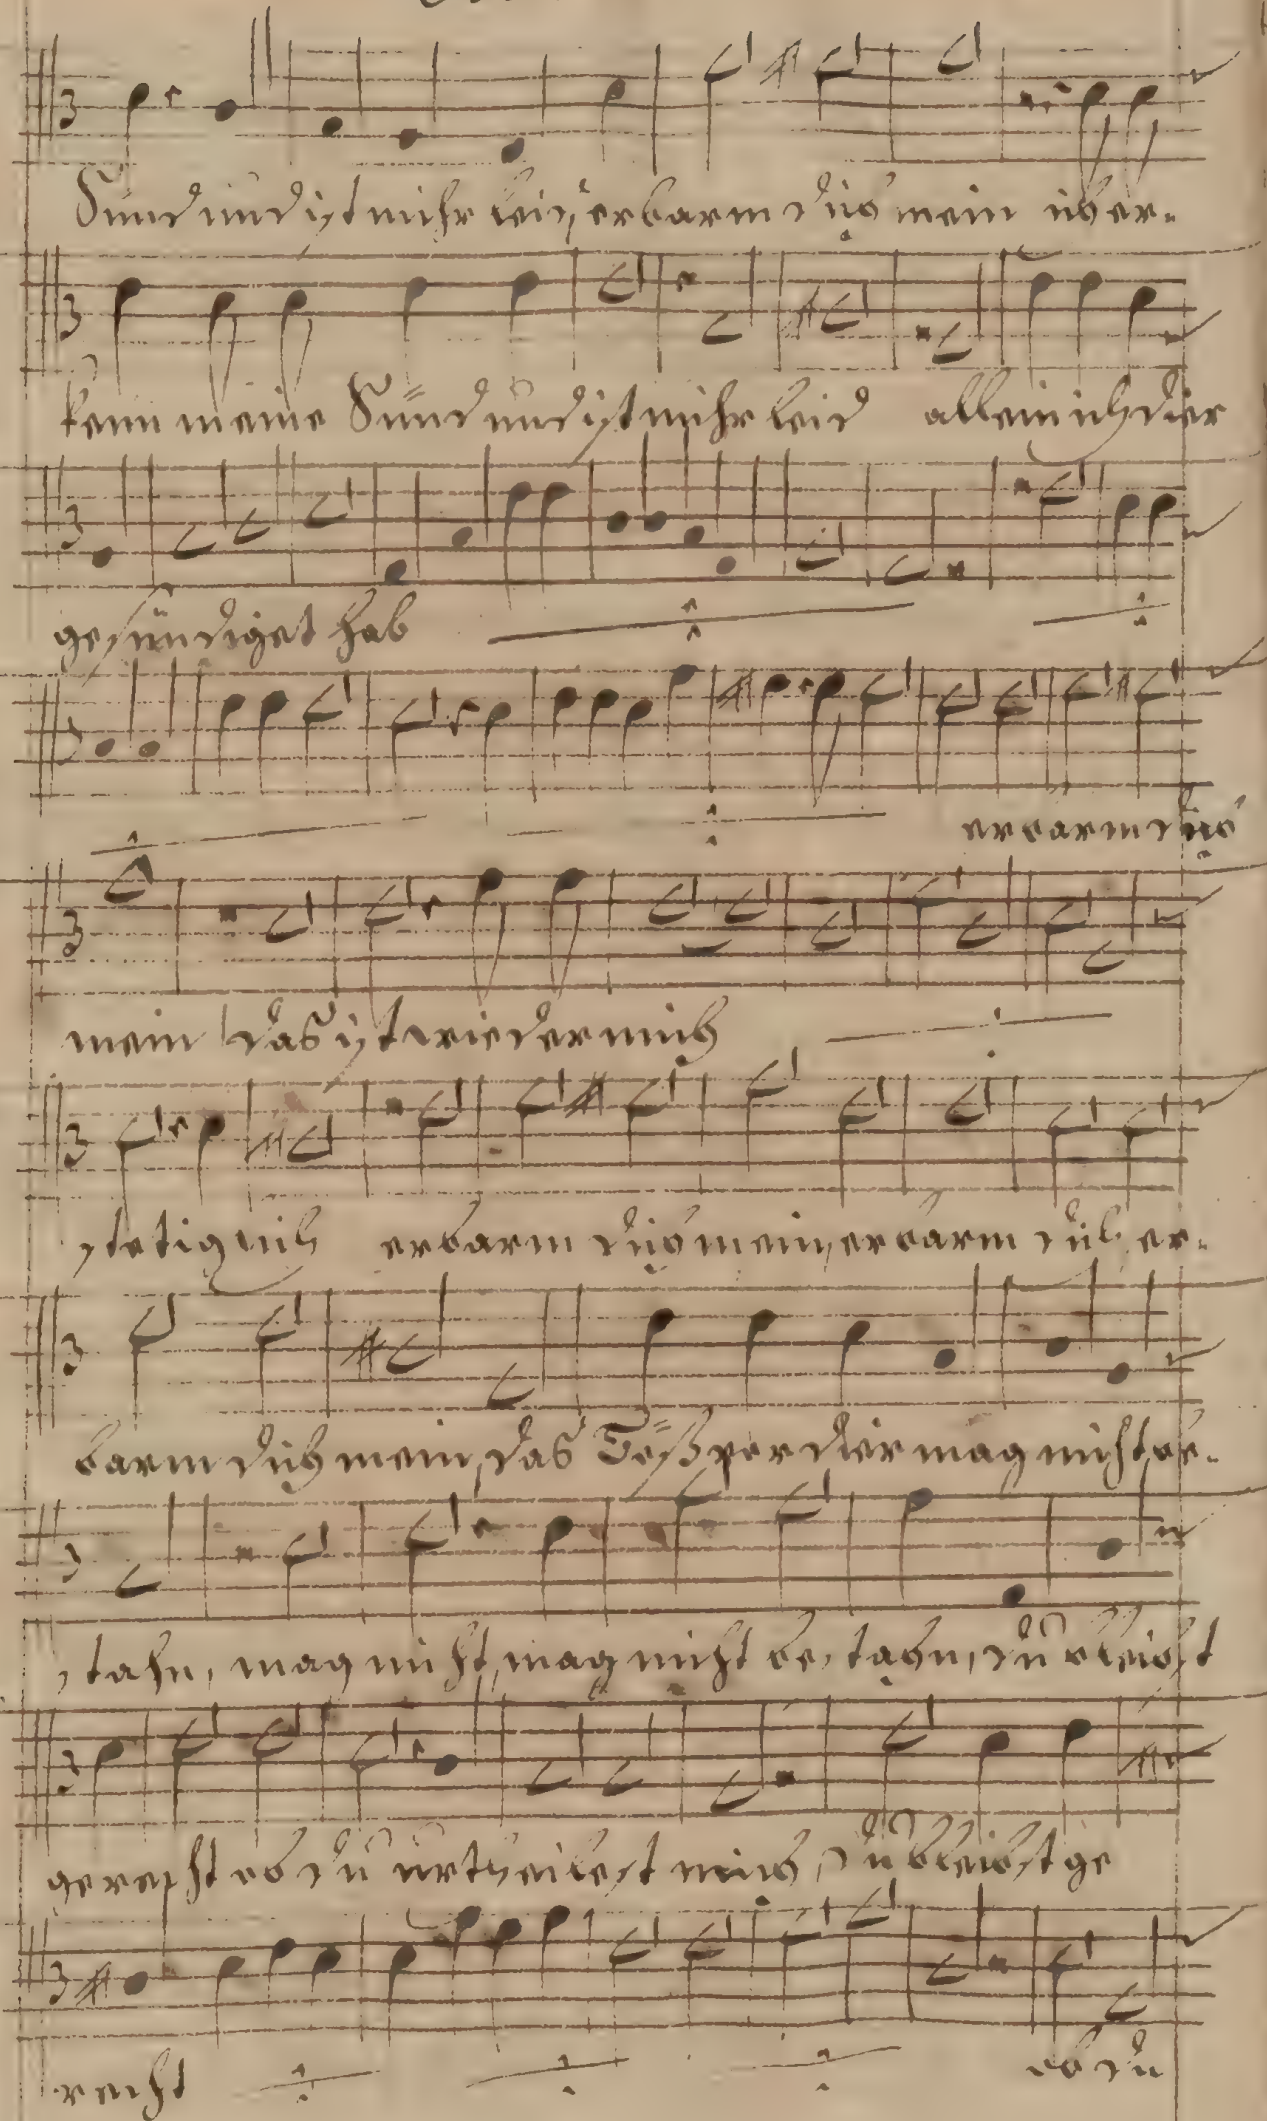 Sünd und ist mihr leid, erbarm dich mein ich er-
kenn meine Sünd und ist mihr leid allein ich dier
gesündiget hab
erbarm dich
mein das ist wieder mich
stetiglich erbarm dich mein, erbarm dich, er-
barm dich mein, das Böß vor dier mag nicht be-
stahn, mag nicht, mag nicht bestahn, du bleibst
gerecht ob du urtheilest mich, du bleibst ge
recht ob du